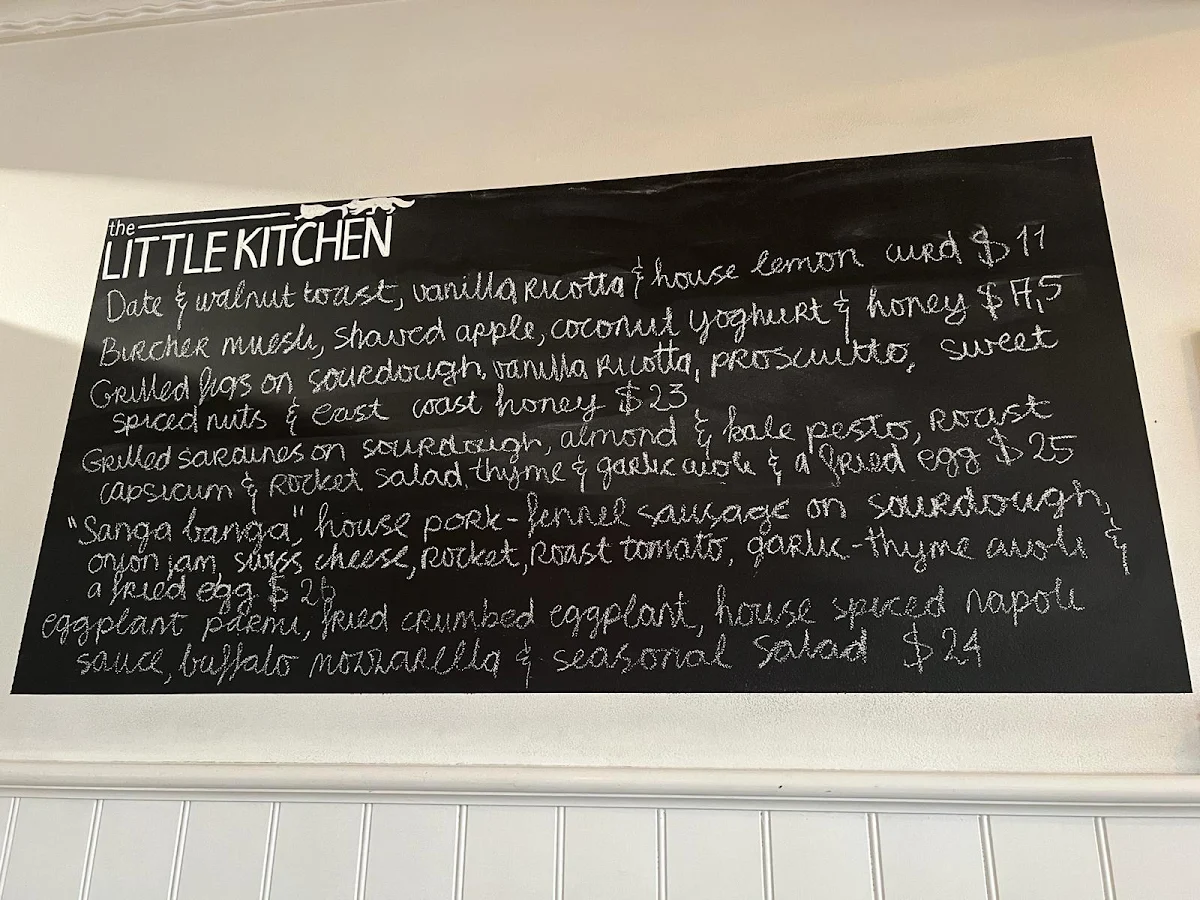 the
LITTLE KITCHEN
Date & walnut toast, vanilla ricotta & house lemon curd $11
Bircher muesli, shaved apple, coconut yoghurt & honey $17,5
Grilled figs on sourdough, vanilla ricotta, prosciutto, sweet
spiced nuts & east coast honey $23
Grilled sardines on sourdough, almond & kale pesto, roast
capsicum & rocket salad, thyme & garlic aioli & a fried egg $25
"Sanga banga", house pork-fennel sausage on sourdough,
onion jam, swiss cheese, rocket, roast tomato, garlic-thyme aioli &
a fried egg $26
eggplant parmi, fried crumbed eggplant, house spiced napoli
sauce, buffalo mozzarella & seasonal salad $24